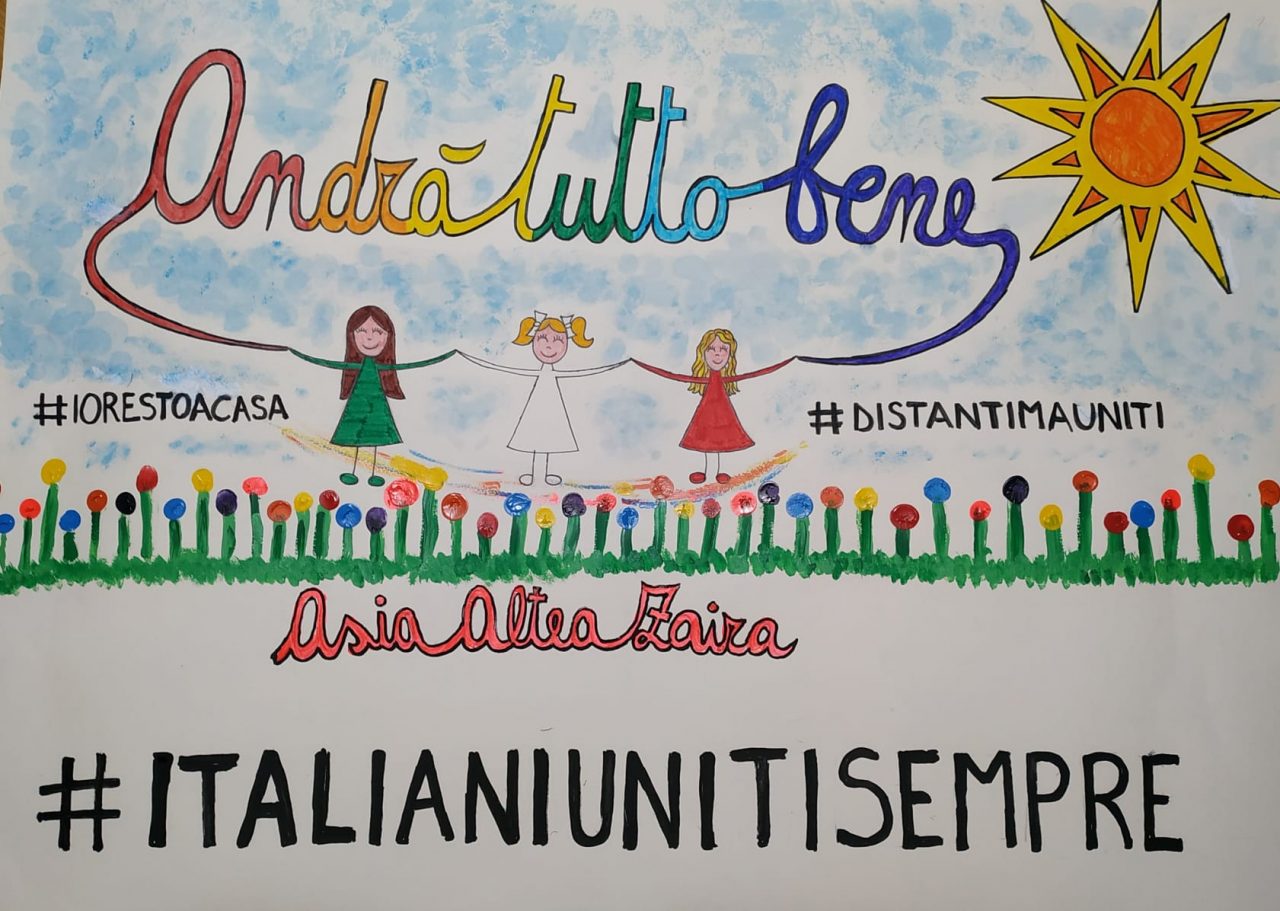 Andrà tutto bene
#IORESTOACASA
#DISTANTIMAUNITI
Asia Altea Zaira
#ITALIANIUNITISEMPRE